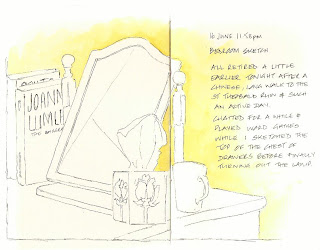 JOANN
LUML
THE
16 JUNE 11.58PM
BEDROOM SKETCH
ALL RETIRED A LITTLE
EARLIER TONIGHT AFTER A
CHINESE, LONG WALK TO THE
ST THEOBALD RUIN & SUCH
AN ACTIVE DAY.
CHATTED FOR A WHILE &
PLAYED WORD GAMES
WHILE I SKETCHED THE
TOP OF THE CHEST OF
DRAWERS BEFORE FINALLY
TURNING OUT THE LAMP.